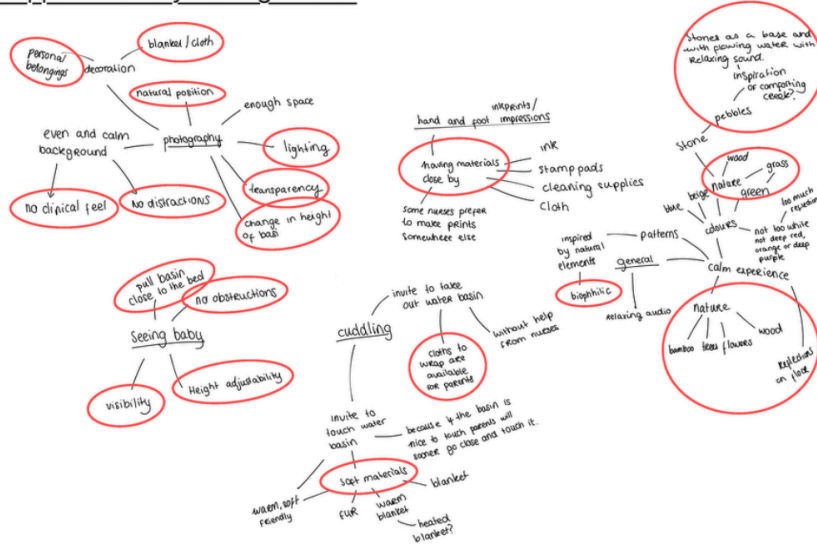 personal
belongings
decoration
blanket/cloth
natural position
enough space
even and calm
background
photography
lighting
transparency
change in height
of basin
no clinical feel
No distractions
pull basin
close to the bed
no obstructions
seeing baby
visibility
Height adjustability
inkprints/
hand and foot impressions
having materials
close by
ink
stamp pads
cleaning supplies
cloth
some nurses prefer
to make prints
somewhere else
cuddling
invite to take
out water basin
cloths to
wrap are
available
for parents
without help
from nurses
invite to
touch water
basin
because if the basin is
nice to touch parents will
sooner go close and touch it.
soft materials
warm, soft
friendly
FUR
warm
blanket
heated
blanket?
blanket
Stones as a base and
with flowing water with
relaxing sound.
inspiration
or comforting
creek?
pebbles
Stone
wood
nature
grass
green
beige
blue
colours
too much
not too white
not deep red,
orange or deep
purple
patterns
inspired
by natural
elements
biophilic
general
relaxing audio
calm experience
nature
bamboo
trees
flowers
wood
reflections
on floor